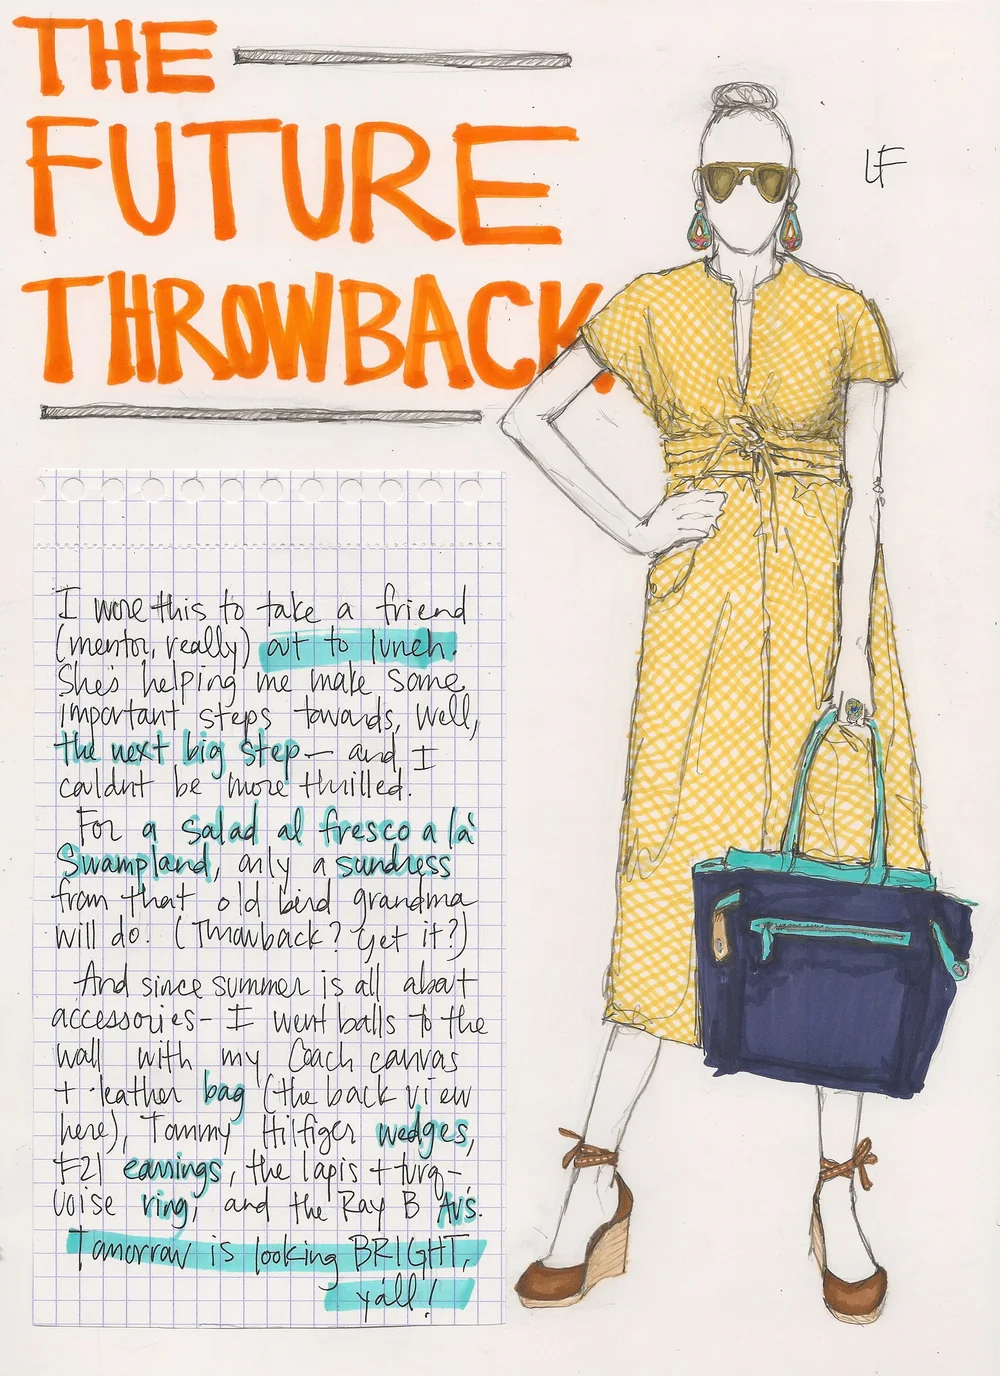 THE
FUTURE
THROWBACK.
LF
I wore this to take a friend
(mentor, really) out to lunch.
She's helping me make some
important steps towards, well,
the next big step - and I
couldn't be more thrilled.
For a salad al fresco a là
Swampland, only a sundress
from that old bird grandma
will do. (Throwback? Get it?)
And since summer is all about
accessories - I went balls to the
wall with my Coach canvas
+ leather bag (the back view
here), Tommy Hilfiger wedges,
F21 earrings, the lapis + turq-
uoise ring, and the Ray B Av's.
Tomorrow is looking BRIGHT,
y'all!